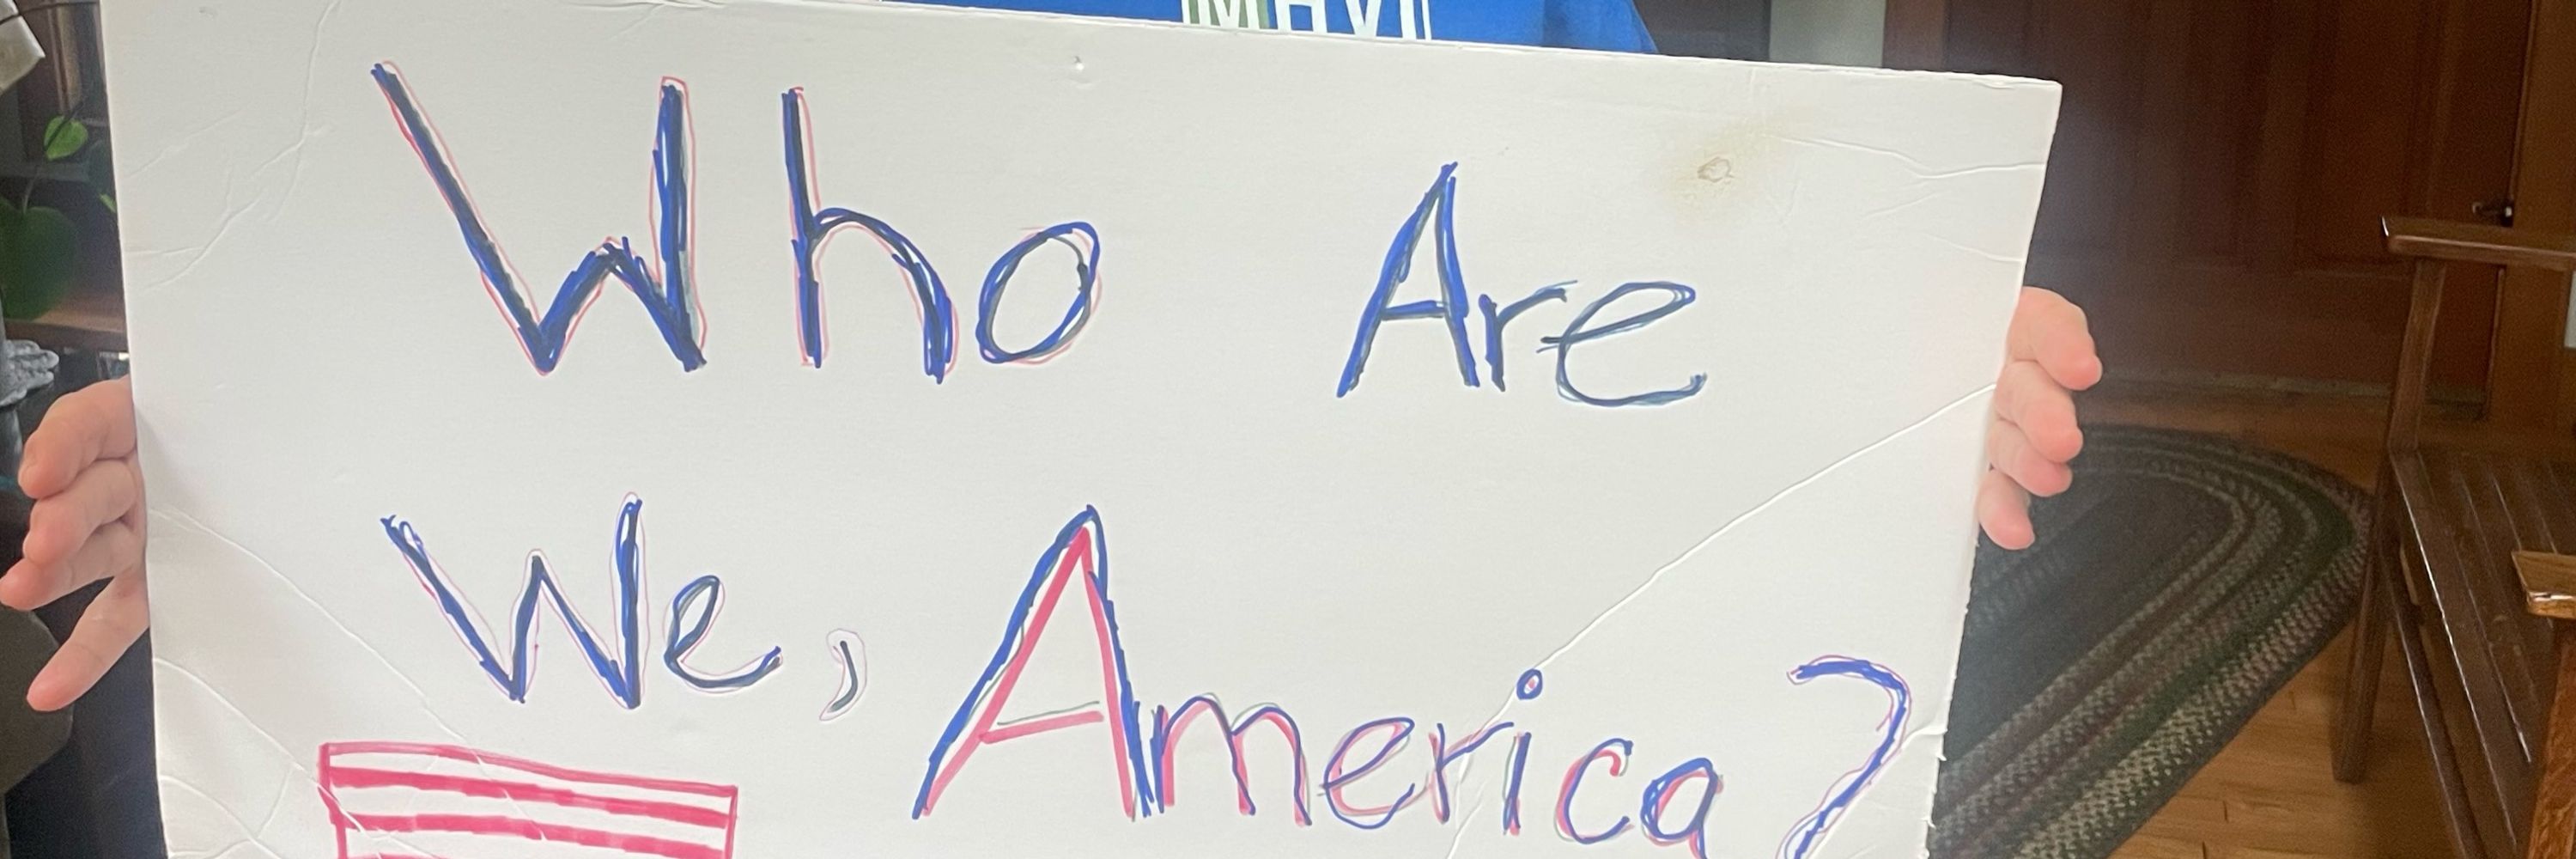 Who Are
We, America?